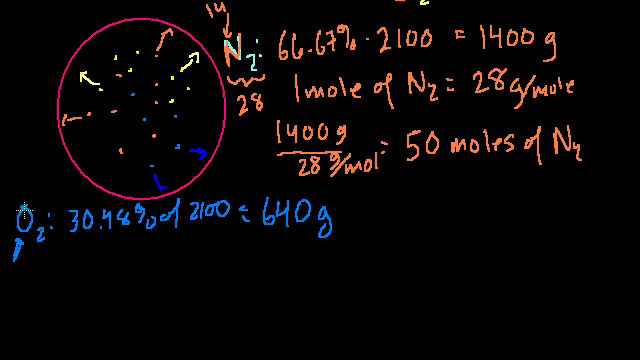 14
2
N₂: 66.67% · 2100 = 1400 g
28
1 mole of N₂ = 28 g/mole
1400 g / 28 g/mol = 50 moles of N₂
O₂: 30.48% of 2100 = 640 g